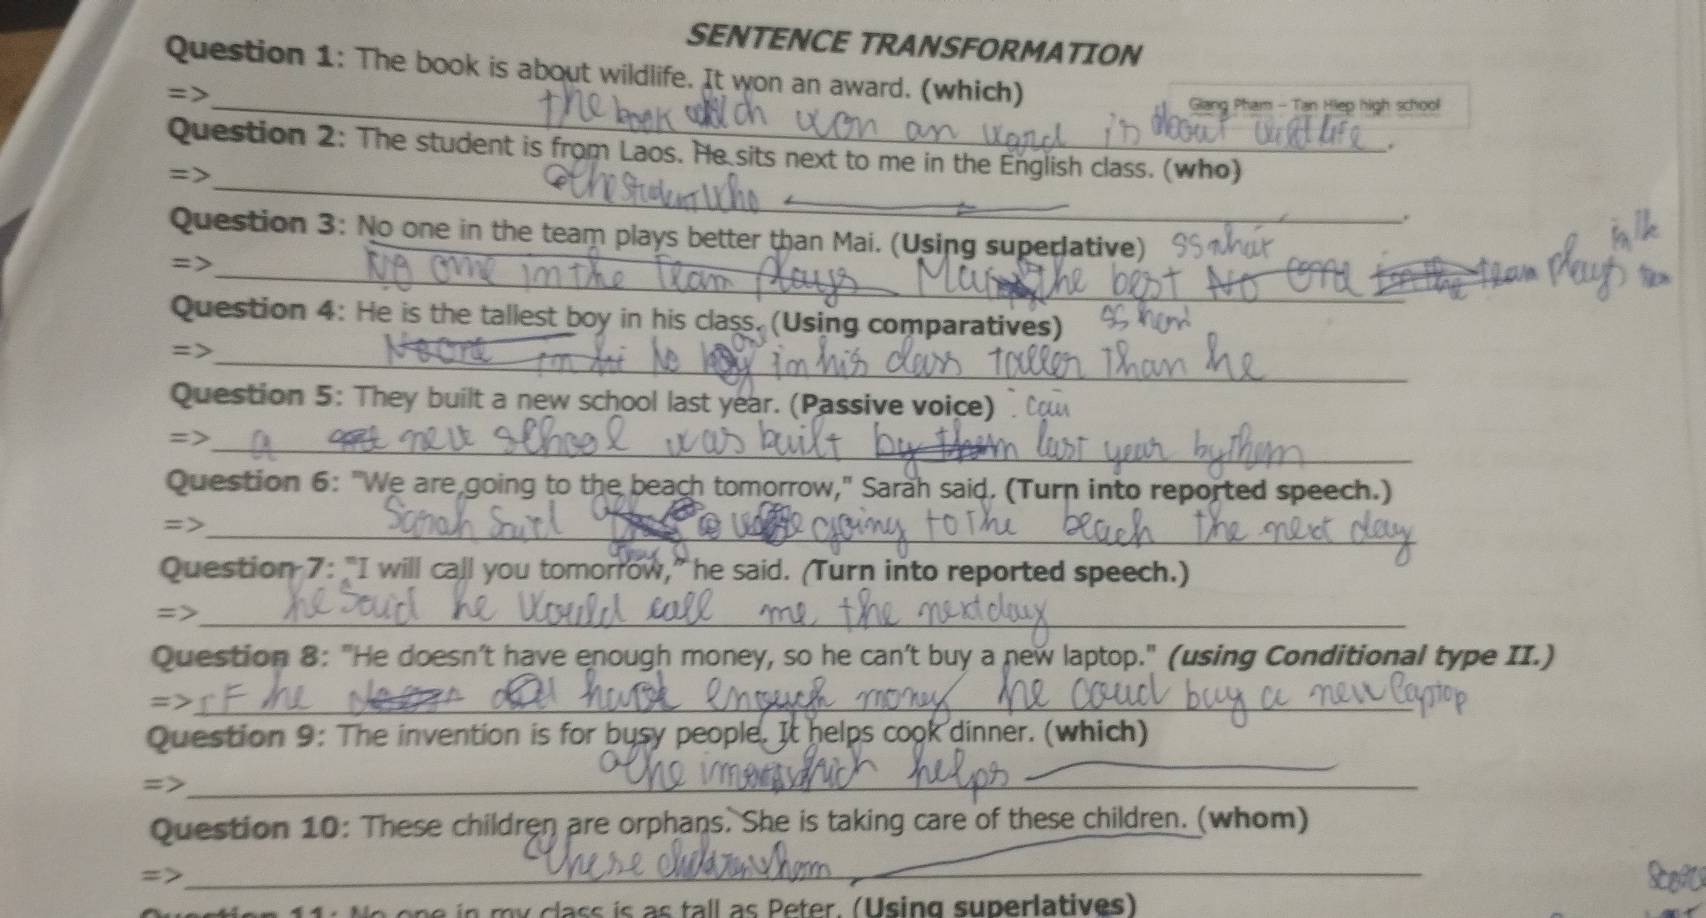 SENTENCE TRANSFORMATION
Question 1: The book is about wildlife. It won an award. (which)
Giang Pham - Tan Hiep high school
=> the book which won an is about life.
Question 2: The student is from Laos. He sits next to me in the English class. (who)
=> the student who
Question 3: No one in the team plays better than Mai. (Using superlative) SS nhất
in the
=> No one in the team plays Mai the best No one in the team plays
Question 4: He is the tallest boy in his class. (Using comparatives) SS hơn
=> No one in his No in his class taller than he
Question 5: They built a new school last year. (Passive voice)
=> a new school was built by them last year by them
Question 6: "We are going to the beach tomorrow," Sarah said. (Turn into reported speech.)
=> Sarah said going to the beach the next day
they
Question 7: "I will call you tomorrow," he said. (Turn into reported speech.)
=> he said he would call me the next day
Question 8: "He doesn't have enough money, so he can't buy a new laptop." (using Conditional type II.)
=> IF he enough money he coud buy a new laptop
Question 9: The invention is for busy people. It helps cook dinner. (which)
=> the which helps
Question 10: These children are orphans. She is taking care of these children. (whom)
=> these whom
Question 11: No one in my class is as tall as Peter. (Using superlatives)